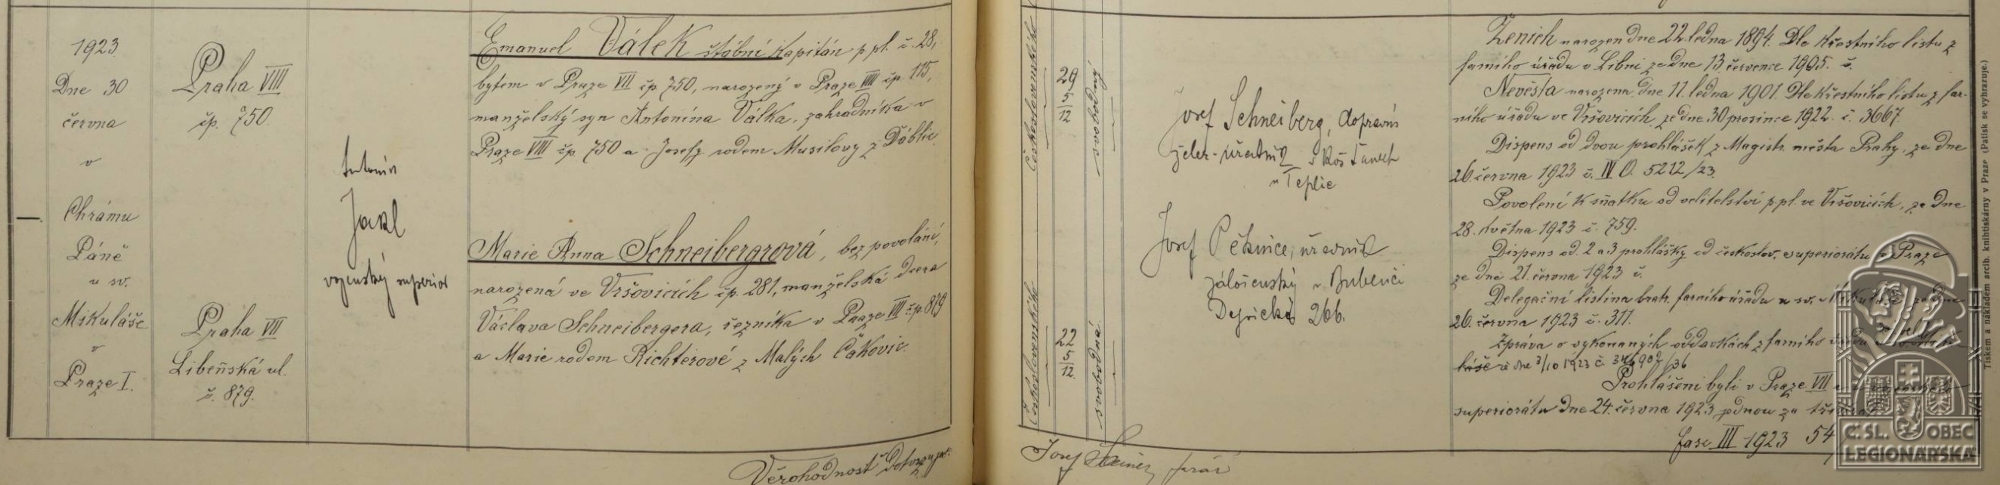 1923
Dne 30
června
v
Chrámu
Páně
u sv.
Mikuláše
v
Praze I.
Praha VIII
čp. 750
Praha VII
Libeňská ul.
č. 879.
Antonín
Jakl
vojenský superior
Emanuel Válek štábní kapitán p. pl. č. 28,
bytem v Praze VII čp 750, narozený v Praze VIII čp. 115,
manželský syn Antonína Válka, zahradníka v
Praze VIII čp 750 a Josefy rodem Musilovy z Ďáblic
Marie Anna Schneibergrová, bez povolání,
narozená ve Vršovicích čp. 281, manželská dcera
Václava Schneibergera, řezníka v Praze VII čp. 879
a Marie rodem Richterové z Malých Čakovic.
Věrohodnost
československého
29
5/12
svobodný
československého
22
5/12
svobodná
Josef Schneiberg, dopravní
želez. úředník
u Teplic
Josef úředník
záložensky v Bubenči
266.
Josef farář
Ženich narozen dne 22. ledna 1894. Dle křestního listu z
farního úřadu v Libni ze dne 13 července 1905. č.
Nevěsta narozena dne 11. ledna 1901. Dle křestního listu z far-
ního úřadu ve Vršovicích, ze dne 30 prosince 1922. č. 3667.
Dispens od dvou prohlášek z Magistr. města Prahy, ze dne
26 června 1923 č. IV O. 5212/23.
Povolení k sňatku od velitelství p. pl. ve Vršovicích, ze dne
28. května 1923 č. 759.
Dispens od 2 a 3 prohlášky od českoslov. superiorátu v Praze
ze dne 21. června 1923 č.
Delegační listina farního úřadu u sv.
26. června 1923 č. 311.
Zpráva o vykonaných oddavkách z farního úřadu
ze dne 3/10 1923 č.
Prohlášeni byli v Praze VII
superiorátu dne 24. června 1923 jednou za
fasc III 1923 54
Tiskem a nákladem arcib. knihtiskárny v Praze (Patisk se vyhrazuje.)
Č. SL. OBEC
LEGIONÁŘSKÁ